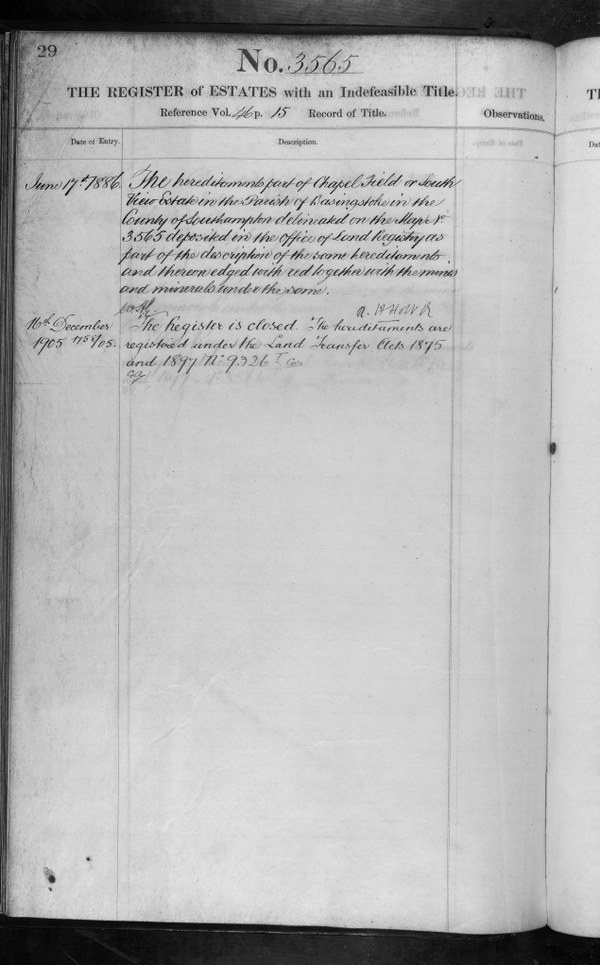 29
No. 3565
THE REGISTER of ESTATES with an Indefeasible Title.
Reference Vol. 46 p. 15 Record of Title.
Observations.
Date of Entry.
Description.
June 17th 1886.
The hereditaments part of Chapel Field or South
View Estate in the Parish of Basingstoke in the
County of Southampton delineated on the Map No
3565 deposited in the Office of Land Registry as
part of the description of the same hereditaments
and thereon edged with red together with the mines
and minerals under the same.
16th December
1905
The Register is closed. The hereditaments are
registered under the Land Transfer Acts 1875
and 1897 No 9326